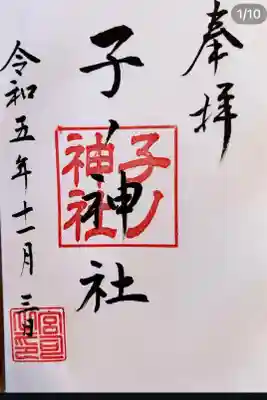 1/10
奉拝
子ノ神社
子ノ
神社
令和五年十一月三日